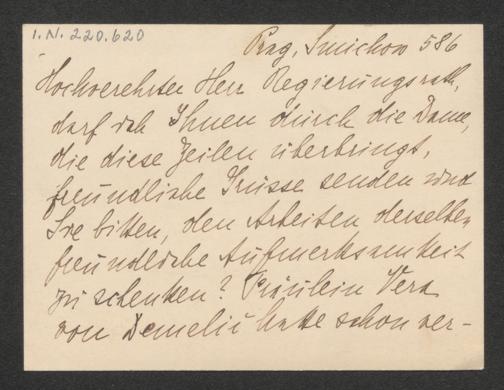 I.N. 220.620
Prag, Smichow 586
Hochverehrter Herr Regierungsrath,
darf ich Ihnen durch die Dame,
die diese Zeilen überbringt,
freundliche Grüsse senden und
Sie bitten, den Arbeiten derselben
freundliche Aufmerksamkeit
zu schenken? Fräulein Vera
von Demelić hatte schon ver-